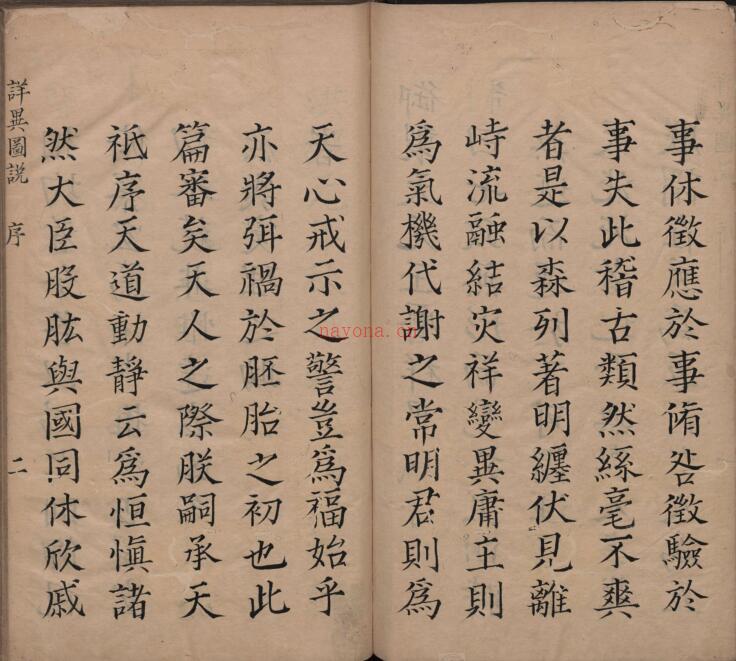 事休徵應於事脩咎徵驗於
事失此稽古類然絲毫不爽
者是以森列著明纏伏見離
峙流融結灾祥變異庸主則
爲氣機代謝之常明君則爲
天心戒示之警豈爲福始乎
亦將弭禍於胚胎之初也此
篇審矣天人之際朕嗣承天
祗序天道動靜云爲恒慎諸
然大臣股肱與國同休欣戚
詳異圖説 序 二
nayona.cn